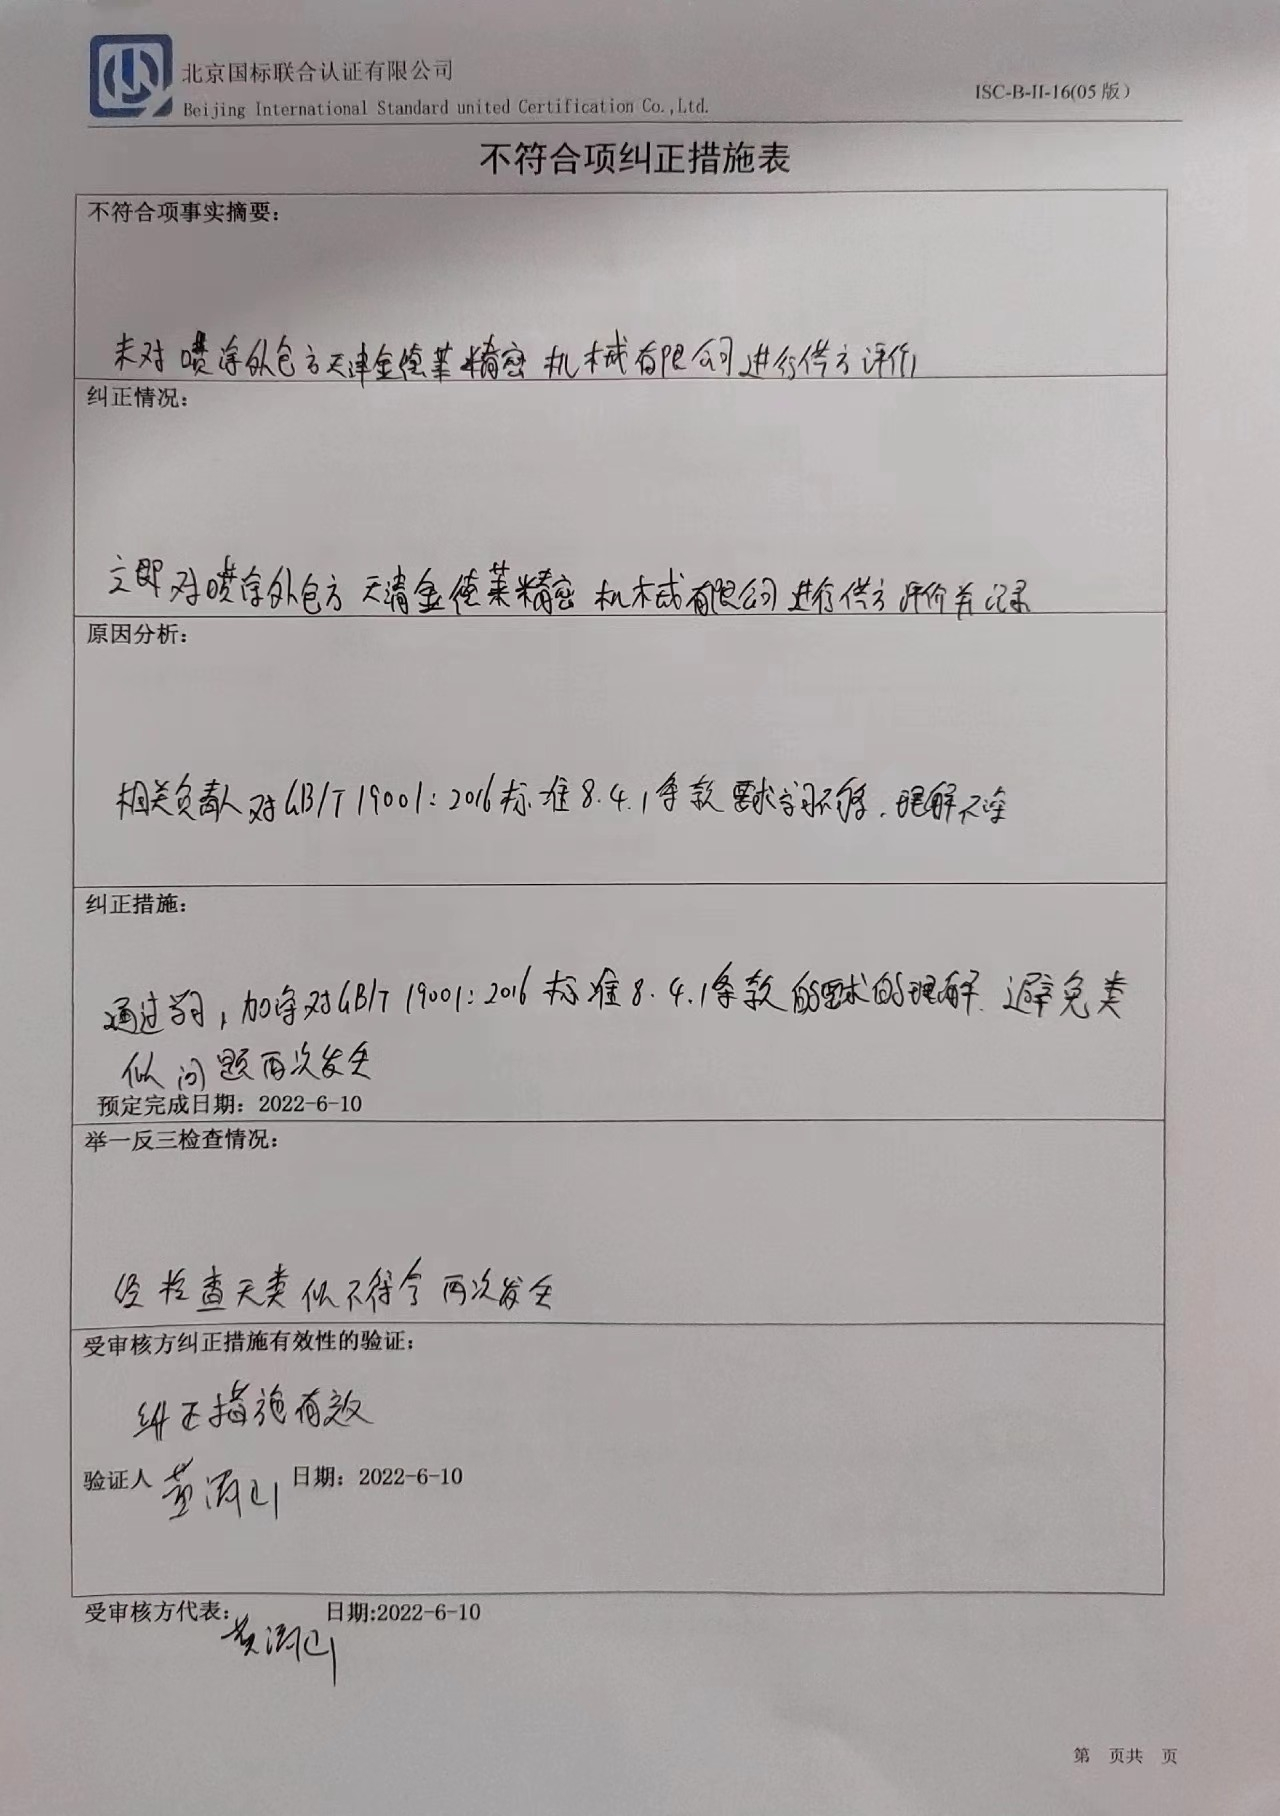 北京国标联合认证有限公司
Beijing International Standard united Certification Co.,Ltd.
ISC-B-II-16(05版)
不符合项纠正措施表
不符合项事实摘要:
未对喷涂外包方天津金德莱精密机械有限公司进行供方评价
纠正情况:
立即对喷涂外包方天津金德莱精密机械有限公司进行供方评价并记录
原因分析:
相关负责人对GB/T 19001:2016标准8.4.1条款要求学习不够、理解不深
纠正措施:
通过学习,加深对GB/T 19001:2016标准8.4.1条款的要求的理解、避免类
似问题再次发生
预定完成日期:2022-6-10
举一反三检查情况:
经检查无类似不符合再次发生
受审核方纠正措施有效性的验证:
纠正措施有效
验证人 黄 山 日期:2022-6-10
受审核方代表: 黄 山 日期:2022-6-10
第 页共 页